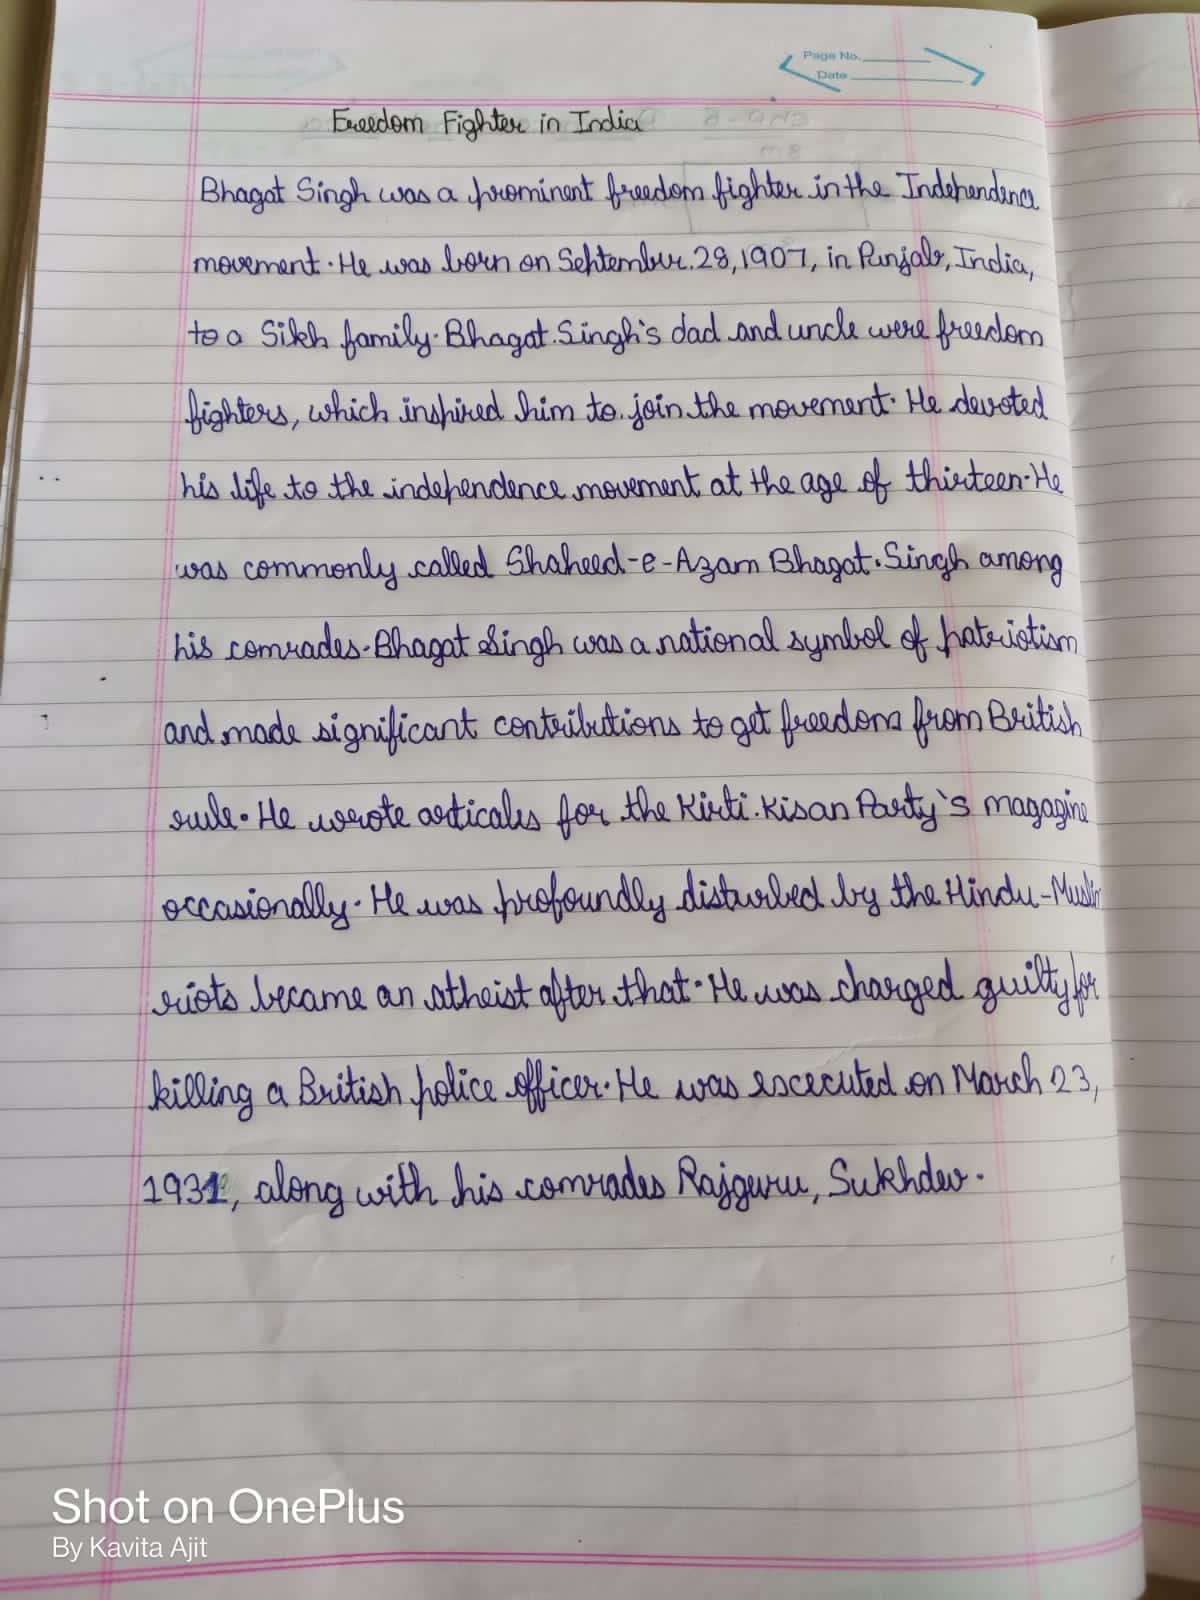 Page No.
Date
Freedom Fighter in India
Bhagat Singh was a prominent freedom fighter in the Independence
movement. He was born on September.28,1907, in Punjab, India,
to a Sikh family. Bhagat.Singh's dad and uncle were freedom
fighters, which inspired him to join the movement. He devoted
his life to the independence movement at the age of thirteen. He
was commonly called Shaheed-e-Azam Bhagat.Singh among
his comrades. Bhagat Singh was a national symbol of patriotism
and made significant contributions to get freedom from British
rule. He wrote articales for the Kirti.Kisan Party's magagine
occasionally. He was profoundly disturbed by the Hindu-Muslim
riots became an atheist after that. He was charged guilty for
killing a British police officer. He was excecuted on March 23,
1931, along with his comrades Rajguru, Sukhdev.
Shot on OnePlus
By Kavita Ajit